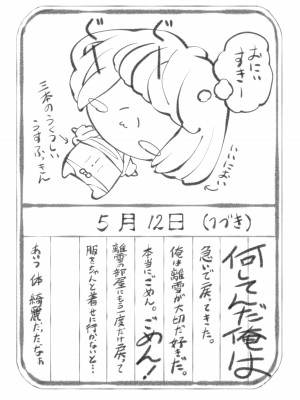 おにい
すきー
ドキ
ドキ
いいにおい
三本のうつくしい
うすふっきん
5月12日(つづき)
何してんだ俺は
急いで戻ってきた。
俺は離雪が大切だ好きだ。
本当に、ごめん。ごめん!
離雪の部屋にもう一度だけ戻って
服をちゃんと着せに行かないと…
あいつ 体 綺麗だったなぁ